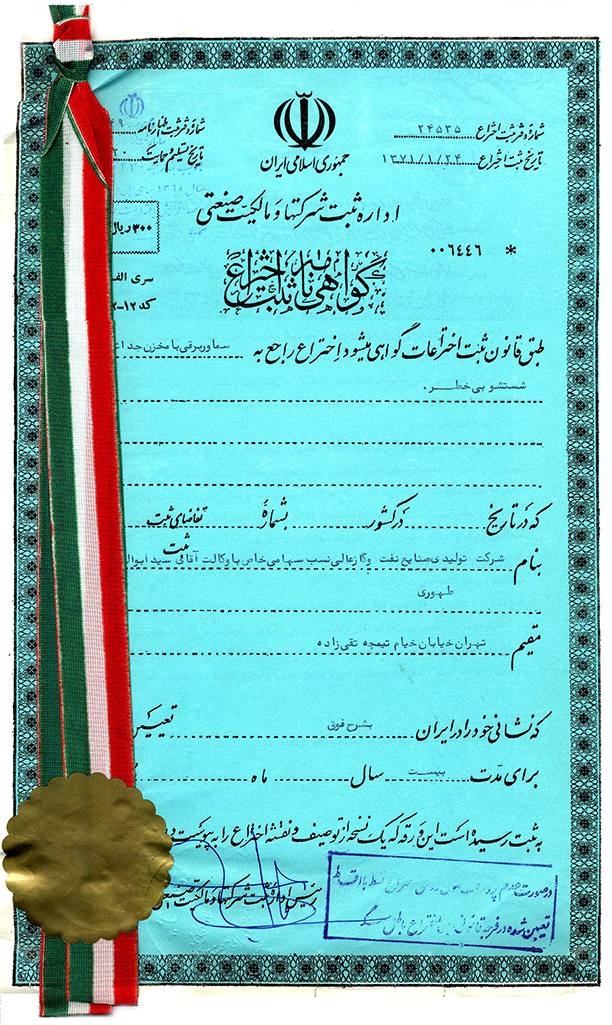 جمهوری اسلامی ایران
شماره دفتر ثبت اختراع ۲۴۵۳۵
تاریخ ثبت اختراع ۱۳۷۱/۱/۲۴
شماره دفتر ثبت اظهارنامه
تاریخ تسلیم و حمایت
اداره ثبت شرکتها و مالکیت صنعتی
۳۰۰ ریال
* ۰۰۶۴۴۶
گواهی نامه ثبت اختراع
سری الف
کد ۱۲-
طبق قانون ثبت اختراعات گواهی میشود اختراع راجع به سماور برقی با مخزن جدا
شستشو بی خطر.
که در تاریخ در کشور بشماره تقاضای ثبت
ثبت
بنام شرکت تولیدی صنایع نفت و گاز عالی نسب سهامی خاص با وکالت آقای سید ابوال
طهوری
مقیم تهران خیابان خیام تیمچه تقی زاده
که نشانی خود را در ایران بشرح فوق تعیین
برای مدت بیست سال ماه
به ثبت رسیده است این ورقه که یک نسخه از توصیف و نقشه اختراع را به پیوست
رئیس اداره ثبت شرکتها و مالکیت صنعتی
در صورت عدم
تعیین شده در فرجه قانونی